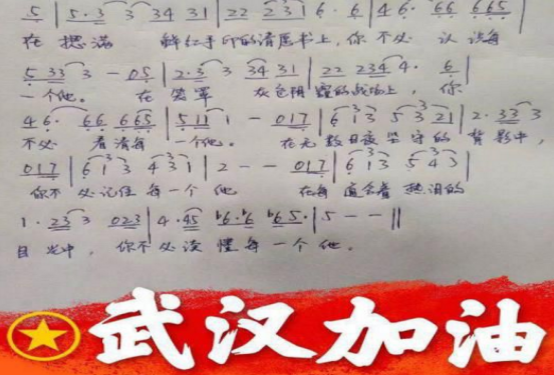 5 | 5·3 3 34 31 | 22 231 6· 6 | 46· 66 665 |
在 摁满 鲜红手印的请愿书上,你不必 认清每
5 33 3 - 05 | 2·3 3 34 31 | 22 234 4· 6 |
一个他。 在 笼罩 灰色 的战场上, 你
46· 66 665 | 511 1 - 017 | 613 5321 | 2·33 3
不必 看清每 一个他。 在无数日夜坚守的 背影中,
017 | 613 431 | 2 - - 017 | 613 543 |
你不必记住每一个 他 在每 含着 热泪的
1·23 3 023 | 4·45 b6·b6 b65· | 5 - - ||
目光中, 你不必读 懂每 一个他。
武汉加油